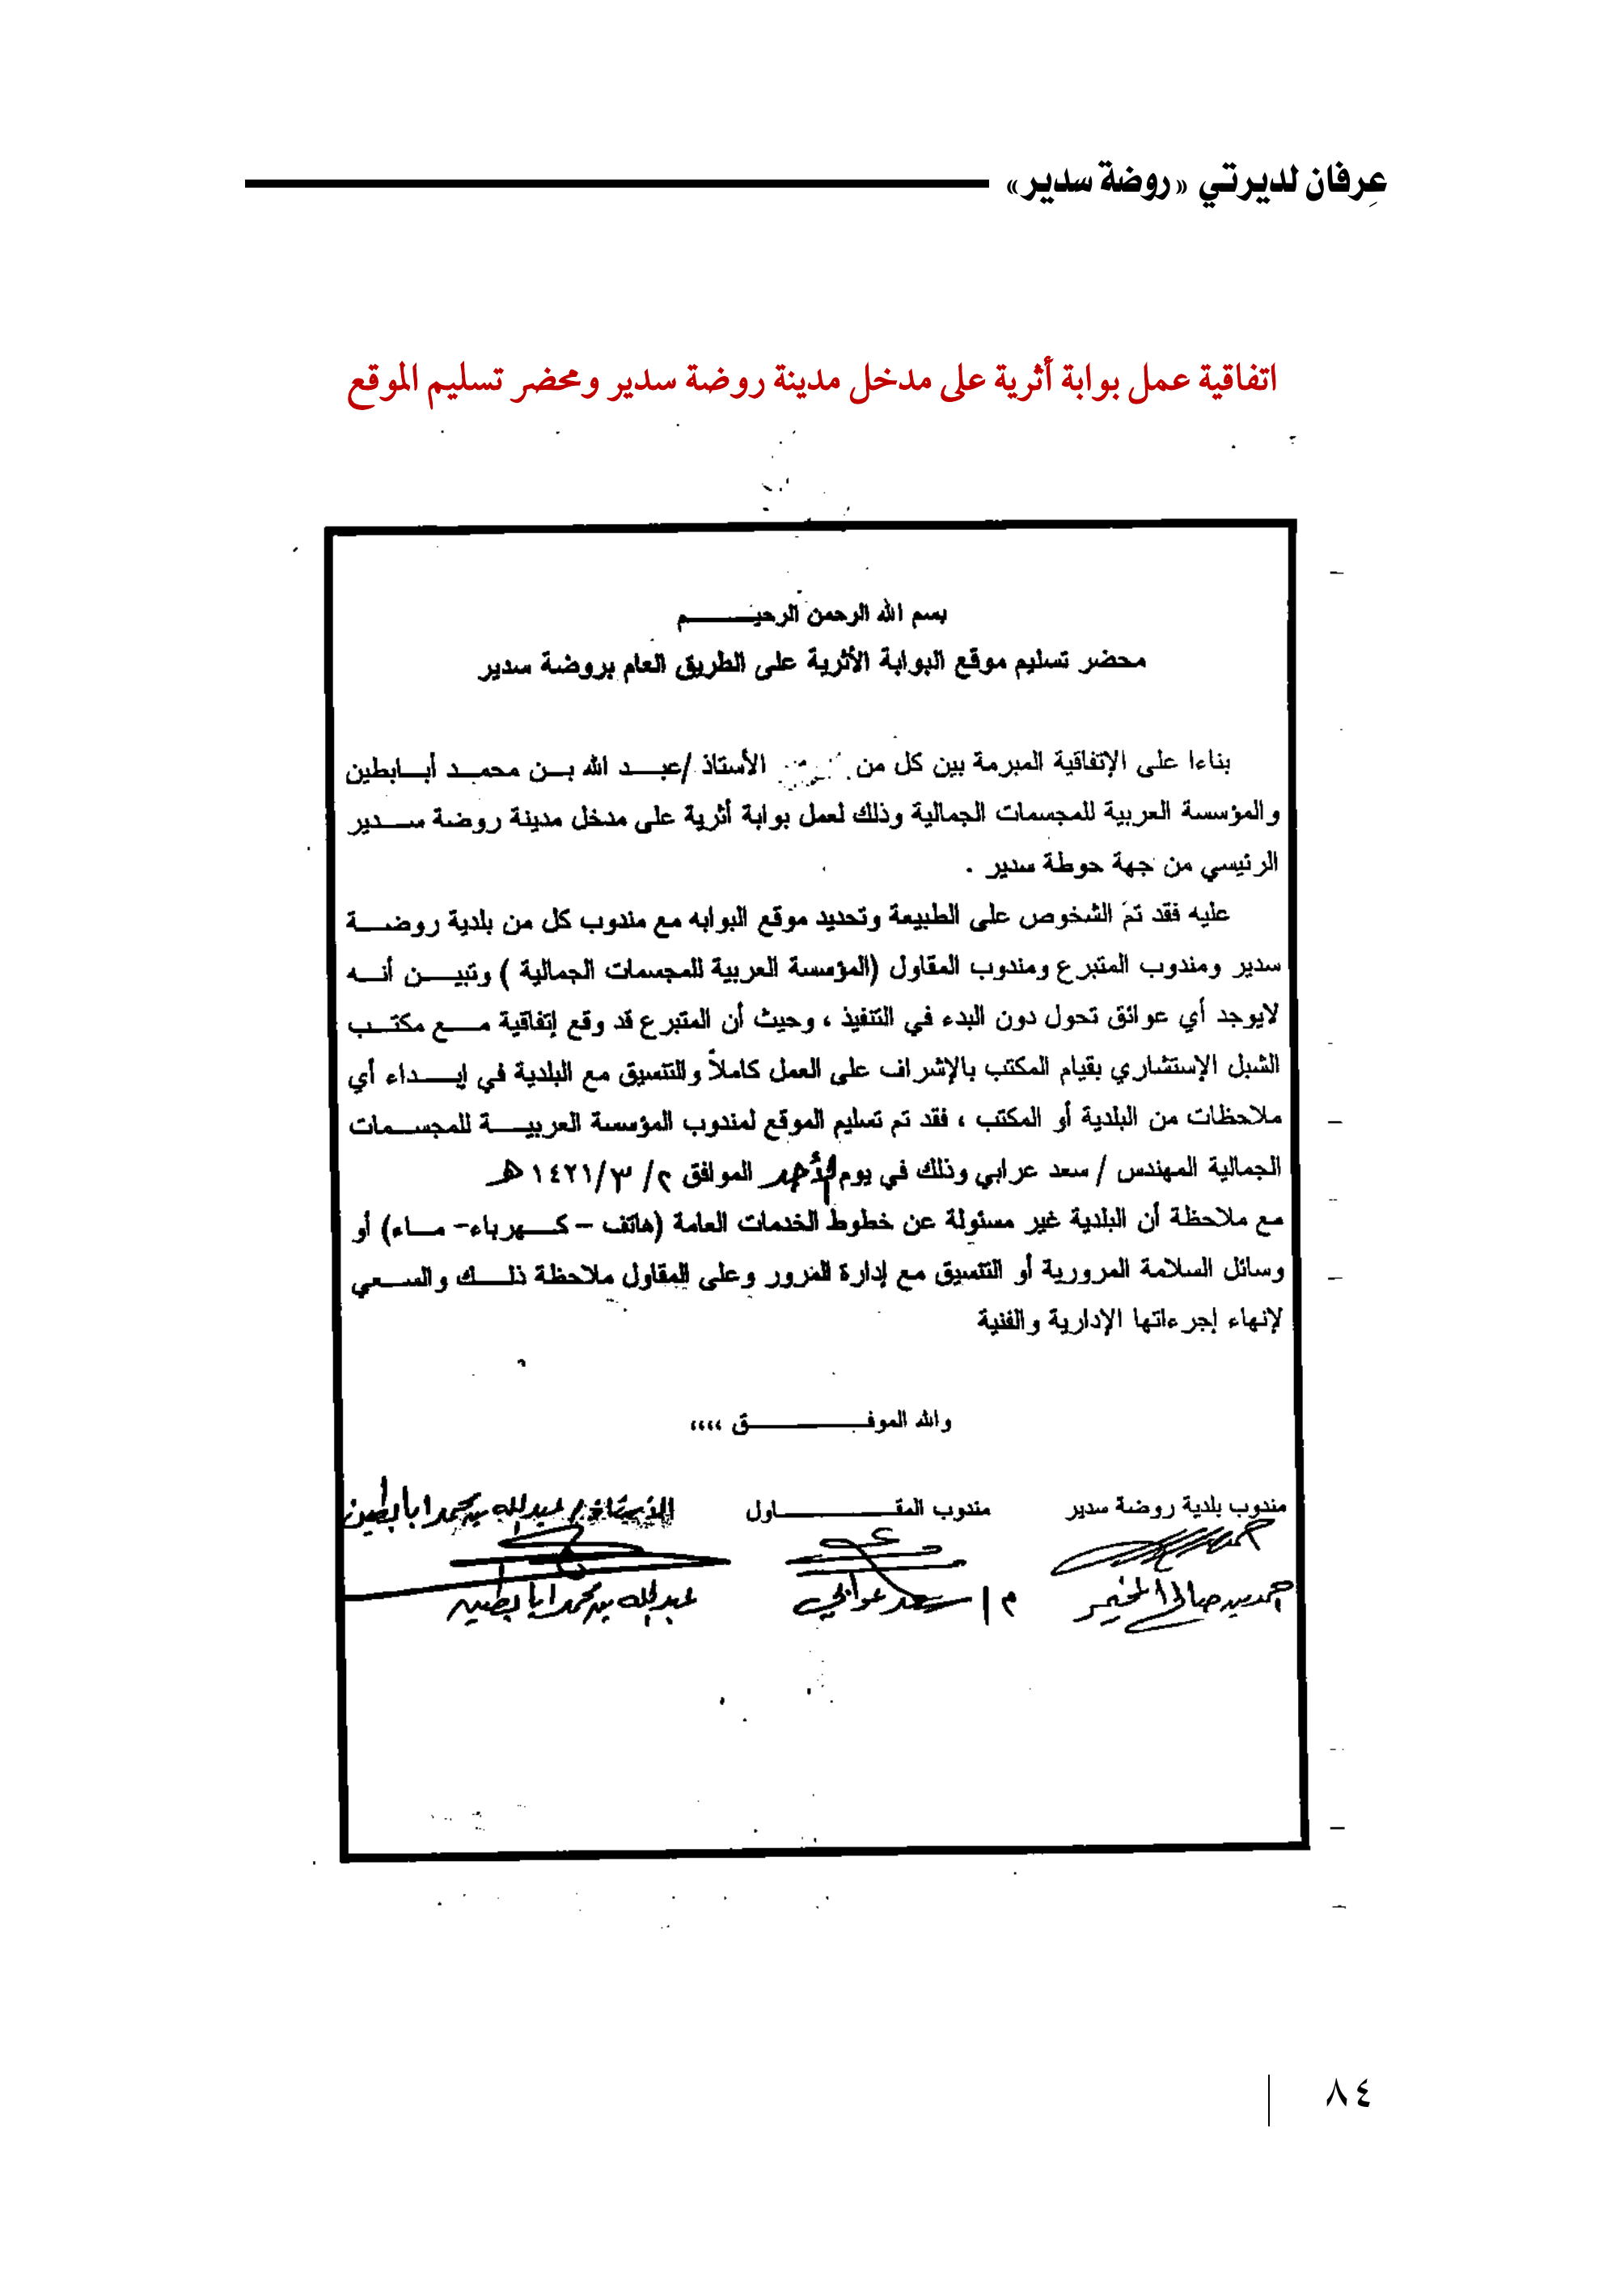 عِرفان لديرتي «روضة سدير»
اتفاقية عمل بوابة أثرية على مدخل مدينة روضة سدير ومحضر تسليم الموقع
بسم الله الرحمن الرحيـــــم
محضر تسليم موقع البوابة الأثرية على الطريق العام بروضة سدير
بناءا على الإتفاقية المبرمة بين كل من الأستاذ /عبــد الله بــن محمــد أبــابطين
والمؤسسة العربية للمجسمات الجمالية وذلك لعمل بوابة أثرية على مدخل مدينة روضة ســدير
الرئيسي من جهة حوطة سدير .
عليه فقد تم الشخوص على الطبيعة وتحديد موقع البوابه مع مندوب كل من بلدية روضــة
سدير ومندوب المتبرع ومندوب المقاول (المؤسسة العربية للمجسمات الجمالية ) وتبيــن أنــه
لايوجد أي عوائق تحول دون البدء في التنفيذ ، وحيث أن المتبرع قد وقع إتفاقية مــع مكتــب
الشبل الإستشاري بقيام المكتب بالإشراف على العمل كاملاً والتنسيق مع البلدية في إبــداء أي
ملاحظات من البلدية أو المكتب ، فقد تم تسليم الموقع لمندوب المؤسسة العربيــة للمجســمات
الجمالية المهندس / سعد عرابي وذلك في يوم الأحد الموافق ٢/ ٣/ ١٤٢١ هـ
مع ملاحظة أن البلدية غير مسئولة عن خطوط الخدمات العامة (هاتف – كــهرباء- مــاء) أو
وسائل السلامة المرورية أو التنسيق مع إدارة المرور وعلى المقاول ملاحظة ذلــك والســعي
لإنهاء إجرءاتها الإدارية والفنية
والله الموفـــــــق ،،،،
مندوب بلدية روضة سدير مندوب المقـــــــاول الأستاذ/ عبدالله بن محمد ابابطين
احمد بن صالح م/ سعد عرابي عبدالله بن محمد ابابطين
٨٤